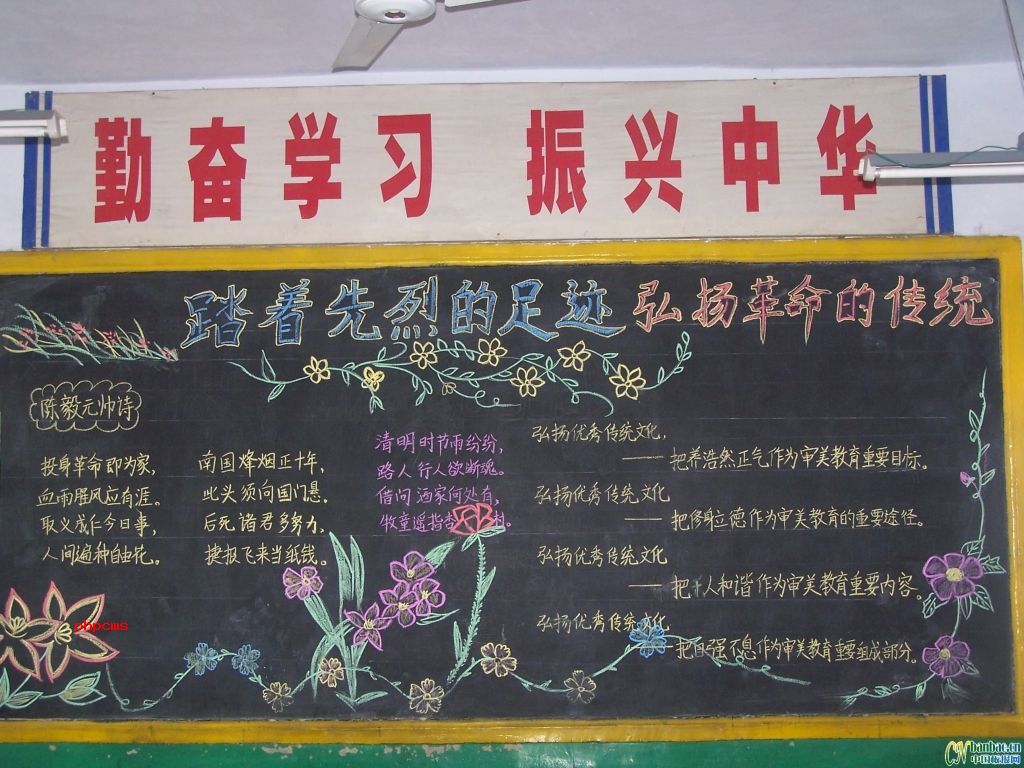 勤奋学习 振兴中华
踏着先烈的足迹 弘扬革命的传统
陈毅元帅诗
投身革命即为家,
血雨腥风应有涯。
取义成仁今日事,
人间遍种自由花。
南国烽烟正十年,
此头须向国门悬。
后死诸君多努力,
捷报飞来当纸钱。
清明时节雨纷纷,
路人行人欲断魂。
借问洒家何处有,
牧童遥指杏 村。
弘扬优秀传统文化,
——把养浩然正气作为审美教育重要目标。
弘扬优秀传统文化
——把修身立德作为审美教育的重要途径。
弘扬优秀传统文化
——把 人和谐作为审美教育重要内容。
弘扬优秀传统文化
——把自强不息作为审美教育重要组成部分。
phpcms
CN banbao.cn
中国板报网